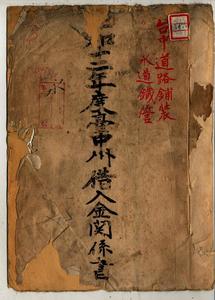 台中道路舗装
水道鐵管
昭和十二年度臺中州借入金関係書
永